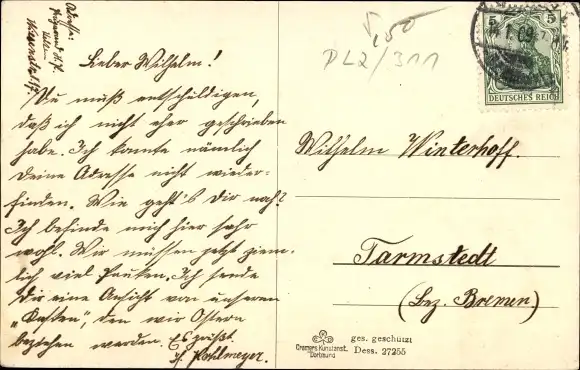 Lieber Wilhelm!
Du mußt entschuldigen,
daß ich nicht eher geschrieben
habe. Ich konnte nämlich
deine Adresse nicht wieder-
finden. Wie geht's Dir noch?
Ich befinde mich hier sehr
wohl. Wir müssen jetzt ziem-
lich viel Pauken. Ich sende
Dir eine Ansicht von unserem
"Kasten", den wir Ostern
beziehen werden. Es grüßt
H. Kohlmeyer.
Adresse:
5,50
DL2/311
5
5
DEUTSCHES REICH
Wilhelm Winterhoff.
Tarmstedt
(Bez. Bremen)
Cramers Kunstanst.
Dortmund
ges. geschützt
Dess. 27255